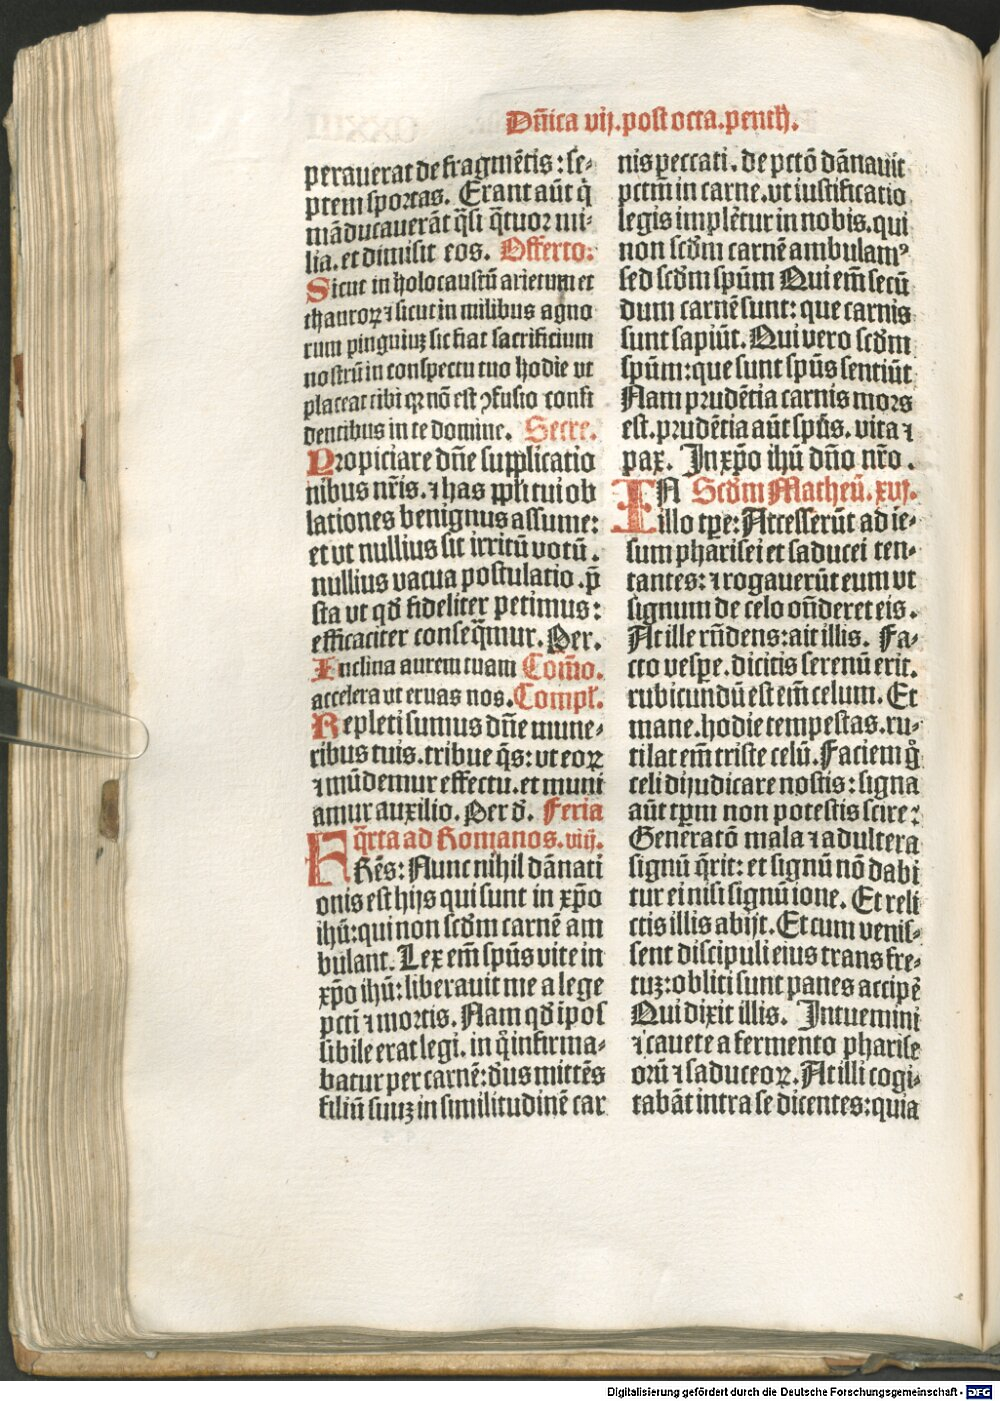 Dn̄ica vij. post octa. penth̄.
perauerat de fragmētis: se-
ptem sportas. Erant aūt q̇
māducauerāt q̄si q̄tuor mi-
lia. et dimisit eos. Offerto:
Sicut in holocaustū arietum et
thauroꝝ ⁊ sicut in milibus agno
rum pinguiuꝫ sic fiat sacrificium
nostrū in conspectu tuo hodie ut
placeat tibi qꝛ nō est ꝯfusio confi
dentibus in te domine. Secre.
Propiciare dn̄e supplicatio
nibus nr̄is. ⁊ has ppl̄i tui ob
lationes benignus assume:
et ut nullius sit irritū uotū.
nullius uacua postulatio. p̄
sta ut qđ fideliter petimus:
efficaciter conseq̄mur. Per.
Inclina aurem tuam Com̄o.
accelera ut eruas nos. Compl̄.
Repleti sumus dn̄e mune-
ribus tuis. tribue q̄s: ut eoꝝ
⁊ mūdemur effectu. et muni
amur auxilio. Per đ. Feria
q̄rta ad Romanos. viij.
FRēs: Nunc nihil dānati
onis est hijs qui sunt in xp̄o
ihū: qui non scđm carnē am
bulant. Lex em̄ spūs vite in
xp̄o ihū: liberauit me a lege
pcti ⁊ mortis. Nam qđ ipos
sibile erat legi. in q̇ infirma-
batur per carnē: đus mittēs
filiū suuꝫ in similitudinē car
nis peccati. de pctō dānauit
pctm̄ in carne. vt iustificatio
legis implētur in nobis. qui
non scđm carnē ambulamꝰ
sed scđm spūm Qui em̄ secū
dum carnē sunt: que carnis
sunt sapiūt. Qui vero scđm
spūm: que sunt spūs sentiūt
Nam prudētia carnis mors
est. prudētia aūt spūs. vita ⁊
pax. In xp̄o ihū dn̄o nr̄o.
IN Scđm Matheū. xvj.
illo tp̄e: Accesserūt ad ie-
sum pharisei et saducei ten-
tantes: ⁊ rogauerūt eum vt
signum de celo on̄deret eis.
At ille rn̄dens: ait illis. Fa-
cto vespe. dicitis serenū erit.
rubicundū est em̄ celum. Et
mane. hodie tempestas. ru-
tilat em̄ triste celū. Faciem g̊
celi dijudicare nostis: signa
aūt tp̄m non potestis scire:
Generatō mala ⁊ adultera
signū q̄rit: et signū nō dabi
tur ei nisi signū ione. Et reli
ctis illis abijt. Et cum venis-
sent discipuli eius trans fre-
tuꝫ: obliti sunt panes accipē
Qui dixit illis. Intuemini
⁊ cauete a fermento pharise
orū ⁊ saduceoꝝ. At illi cogi-
tabāt intra se dicentes: quia
Digitalisierung gefördert durch die Deutsche Forschungsgemeinschaft - DFG